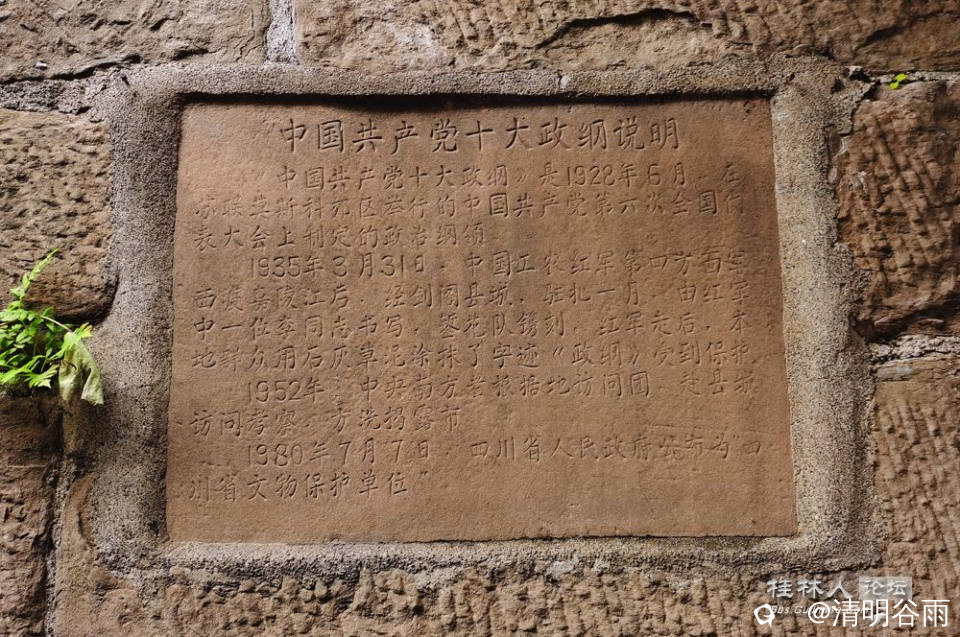 中国共产党十大政纲说明
《中国共产党十大政纲》是1928年6月,在
苏联莫斯科市区举行的中国共产党第六次全国代
表大会上制定的政治纲领
1935年3月31日,中国工农红军第四方面军
西渡嘉陵江后,经剑阁县城,驻扎一月,由红军
中一位李同志书写,錾花队镌刻,红军走后,本
地群众用石灰草泥涂抹了字迹《政纲》受到保护
1952年,中央南方老根据地访问团
访问考察,方洗揭露
1980年7月7日,四川省人民政府公布为"四
川省文物保护单位"
桂林人论坛
@清明谷雨